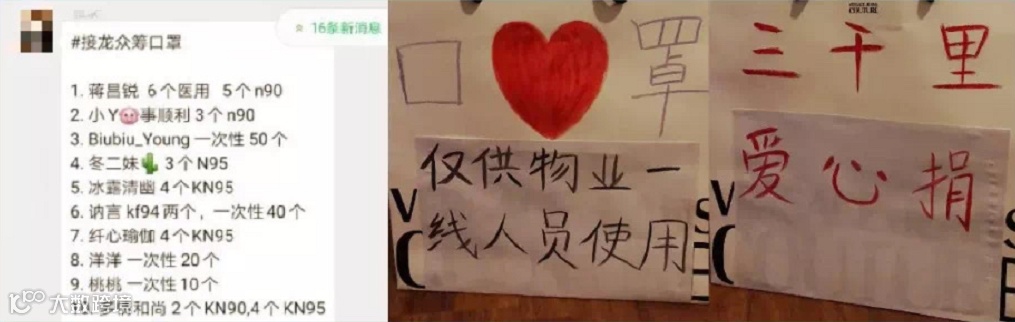 #接龙众筹口罩
16条新消息
1. 蒋昌锐 6个医用 5个n90
2. 小Y🐷事顺利 3个n90
3. Biubiu_Young 一次性50个
4. 冬二妹🌵 3个N95
5. 冰露清幽 4个KN95
6. 讷言 kf94两个，一次性40个
7. 纤心瑜伽 4个KN95
8. 洋洋 一次性20个
9. 桃桃 一次性10个
和尚 2个KN90,4个KN95
大数跨境
口 罩
仅供物业一
线人员使用
CULTURE
三千里
爱心捐